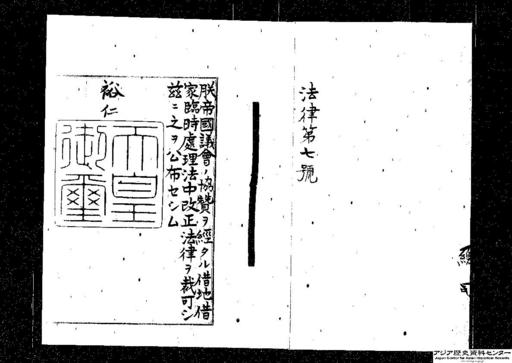 法律第七號
朕帝國議會ノ協贊ヲ經タル借地借
家臨時處理法中改正法律ヲ裁可シ
茲ニ之ヲ公布セシム
裕仁
天皇
御璽
アジア歴史資料センター
Japan Center for Asian Historical Records